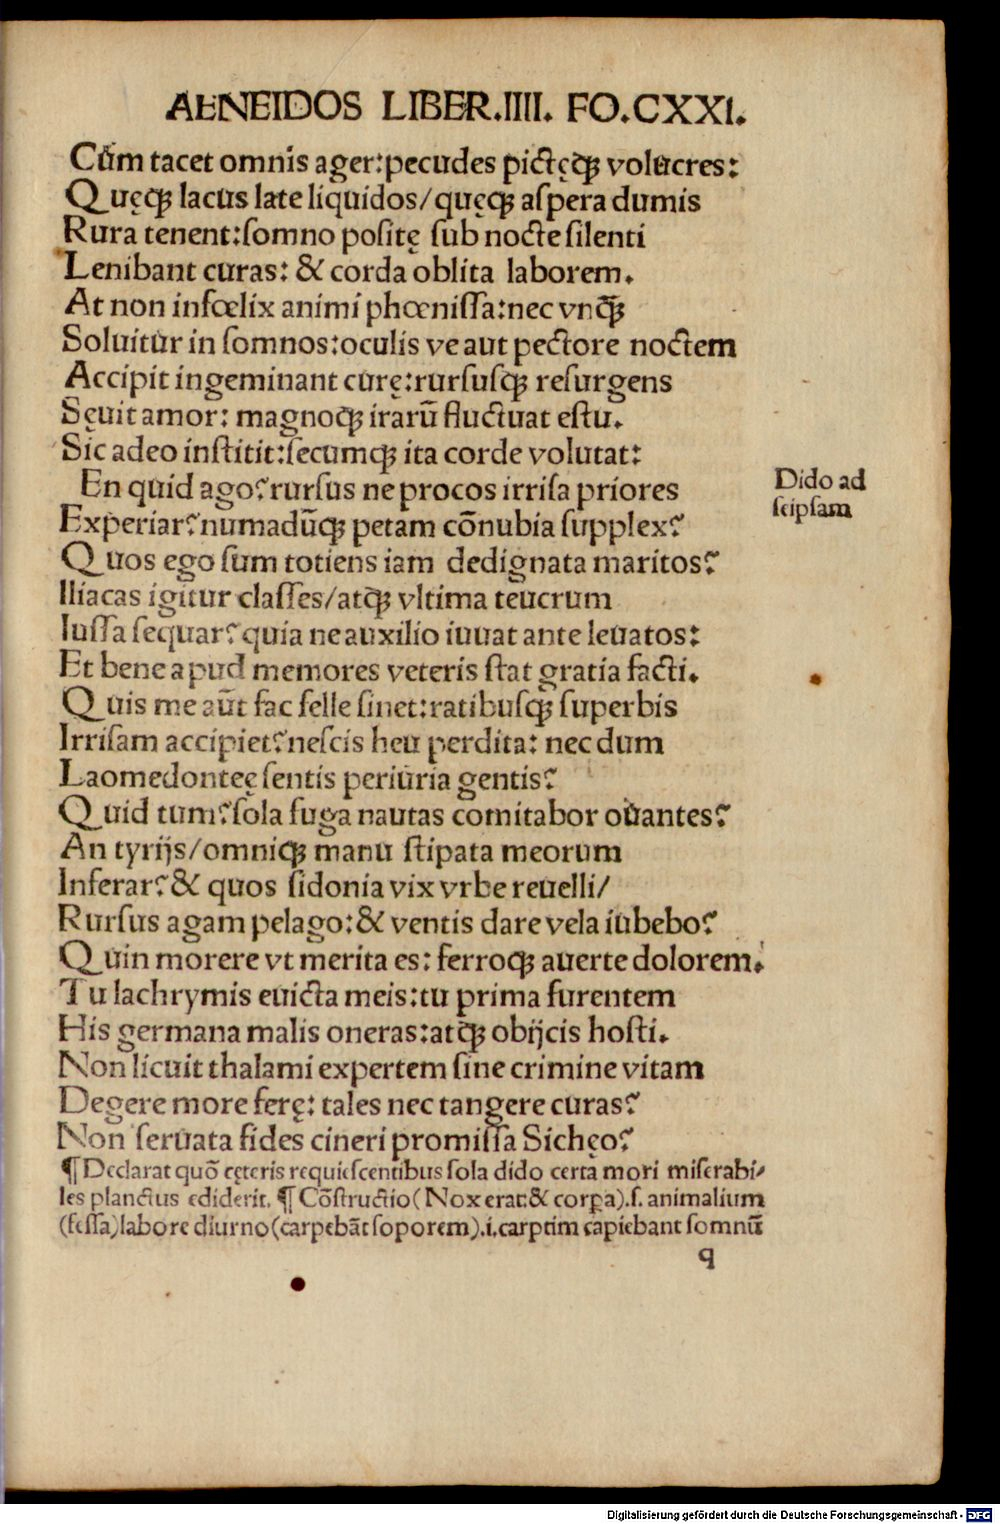 AENEIDOS LIBER.IIII. FO.CXXI.
Cūm tacet omnis ager:pecudes pictęq̃ꝫ volucres:
Quęqꝫ lacus late liquidos/quęqꝫ aſpera dumis
Rura tenent:ſomno poſitę ſub nocte ſilenti
Lenibant curas: & corda oblita laborem.
At non infœlix animi phœniſſa:nec vnq̃ꝫ
Soluitur in ſomnos:oculis ve aut pectore noctem
Accipit ingeminant curę:rurſuſqꝫ reſurgens
Sęuit amor: magnoqꝫ irarū fluctuat eſtu.
Sic adeo inſtitit:ſecumqꝫ ita corde volutat:
En quid ago?rurſus ne procos irriſa priores
Dido ad
ſeipſam
Experiar?numadūqꝫ petam cōnubia ſupplex?
Quos ego ſum totiens iam dedignata maritos?
Iliacas igitur claſſes/atq̃ꝫ vltima teucrum
Iuſſa ſequar?quia ne auxilio iuuat ante leuatos:
Et bene apud memores veteris ſtat gratia facti.
Quis me aūt fac felle ſinet:ratibuſqꝫ ſuperbis
Irriſam accipiet?neſcis heu perdita: nec dum
Laomedonteę ſentis periuria gentis?
Quid tum?ſola fuga nautas comitabor ouantes?
An tyrijs/omniqꝫ manu ſtipata meorum
Inferar?& quos ſidonia vix vrbe reuelli/
Rurſus agam pelago:& ventis dare vela iubebo?
Quin morere vt merita es: ferroqꝫ auerte dolorem.
Tu lachrymis euicta meis:tu prima furentem
His germana malis oneras:atq̃ꝫ obijcis hoſti.
Non licuit thalami expertem ſine crimine vitam
Degere more ferę: tales nec tangere curas?
Non ſeruata fides cineri promiſſa Sichęo?
¶ Declarat quō cęteris requieſcentibus ſola dido certa mori miſerabi⸗
les planctus ediderit. ¶ Cōſtructio(Nox erat:& corꝑa).ſ. animalium
(feſſa)labore diurno(carpebāt ſoporem).i.carptim capiebant ſomnū
q
Digitalisierung gefördert durch die Deutsche Forschungsgemeinschaft - DFG